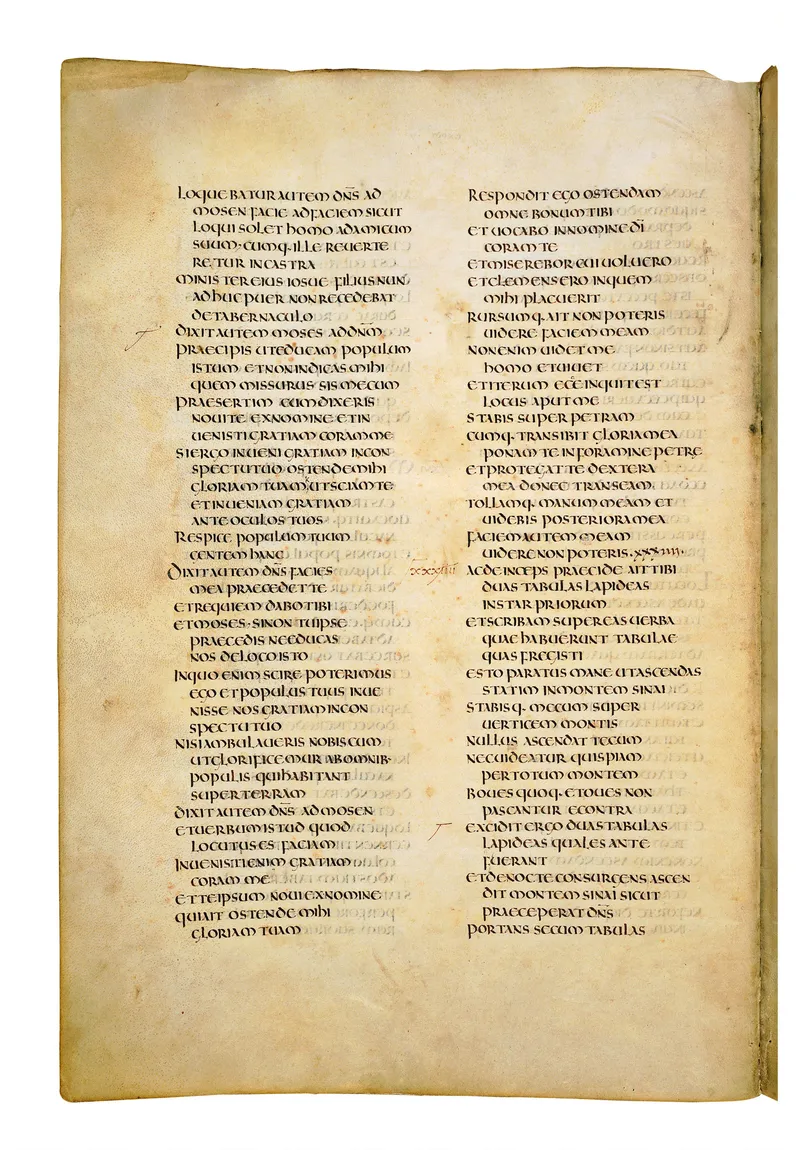 LOQUEBATUR AUTEM DN̅S AD
MOSEN FACIE AD FACIEM SICUT
LOQUI SOLET HOMO AD AMICUM
SUUM· CUMQ· ILLE REUERTE
RETUR IN CASTRA
MINISTER EIUS IOSUE FILIUS NUN
ADHUC PUER NON RECEDEBAT
DE TABERNACULO
DIXIT AUTEM MOSES AD DNM̅
PRAECIPIS UT EDUCAM POPULUM
ISTUM ET NON INDICAS MIHI
QUEM MISSURUS SIS MECUM
PRAESERTIM CUM DIXERIS
NOUI TE EX NOMINE ET IN
UENISTI GRATIAM CORAM ME
SI ERGO INUENI GRATIAM IN CON
SPECTU TUO OSTENDE MIHI
GLORIAM TUAM UT SCIAM TE
ET INUENIAM GRATIAM
ANTE OCULOS TUOS
RESPICE POPULUM TUUM
GENTEM HANC
DIXIT AUTEM DN̅S FACIES
MEA PRAECEDET TE
ET REQUIEM DABO TIBI
ET MOSES· SI NON TU IPSE
PRAECEDIS NE EDUCAS
NOS DE LOCO ISTO
IN QUO ENIM SCIRE POTERIMUS
EGO ET POPULUS TUUS INUE
NISSE NOS GRATIAM IN CON
SPECTU TUO
NISI AMBULAUERIS NOBISCUM
UT GLORIFICEMUR AB OMNIB·
POPULIS QUI HABITANT
SUPER TERRAM
DIXIT AUTEM DN̅S AD MOSEN
ET UERBUM ISTUD QUOD
LOCUTUS ES FACIAM
INUENISTI ENIM GRATIAM
CORAM ME
ET TE IPSUM NOUI EX NOMINE
QUI AIT OSTENDE MIHI
GLORIAM TUAM
RESPONDIT EGO OSTENDAM
OMNE BONUM TIBI
ET UOCABO IN NOMINE DI̅
CORAM TE
ET MISEREBOR CUI UOLUERO
ET CLEMENS ERO IN QUEM
MIHI PLACUERIT
RURSUMQ· AIT NON POTERIS
UIDERE FACIEM MEAM
NON ENIM UIDET ME
HOMO ET UIUET
ET ITERUM ECCE INQUIT EST
LOCUS APUT ME
STABIS SUPER PETRAM
CUMQ· TRANSIBIT GLORIA MEA
PONAM TE IN FORAMINE PETRE
ET PROTEGAT TE DEXTERA
MEA DONEC TRANSEAM
TOLLAMQ· MANUM MEAM ET
UIDEBIS POSTERIORA MEA
FACIEM AUTEM MEAM
UIDERE NON POTERIS· XXXIIII·
XXXIIII AC DEINCEPS PRAECIDE AIT TIBI
DUAS TABULAS LAPIDEAS
INSTAR PRIORUM
ET SCRIBAM SUPER EAS UERBA
QUAE HABUERUNT TABULAE
QUAS FREGISTI
ESTO PARATUS MANE UT ASCENDAS
STATIM IN MONTEM SINAI
STABISQ· MECUM SUPER
UERTICEM MONTIS
NULLUS ASCENDAT TECUM
NEC UIDEATUR QUISPIAM
PER TOTUM MONTEM
BOUES QUOQ· ET OUES NON
PASCANTUR E CONTRA
EXCIDIT ERGO DUAS TABULAS
LAPIDEAS QUALES ANTE
FUERANT
ET DE NOCTE CONSURGENS ASCEN
DIT MONTEM SINAI SICUT
PRAECEPERAT DN̅S
PORTANS SECUM TABULAS